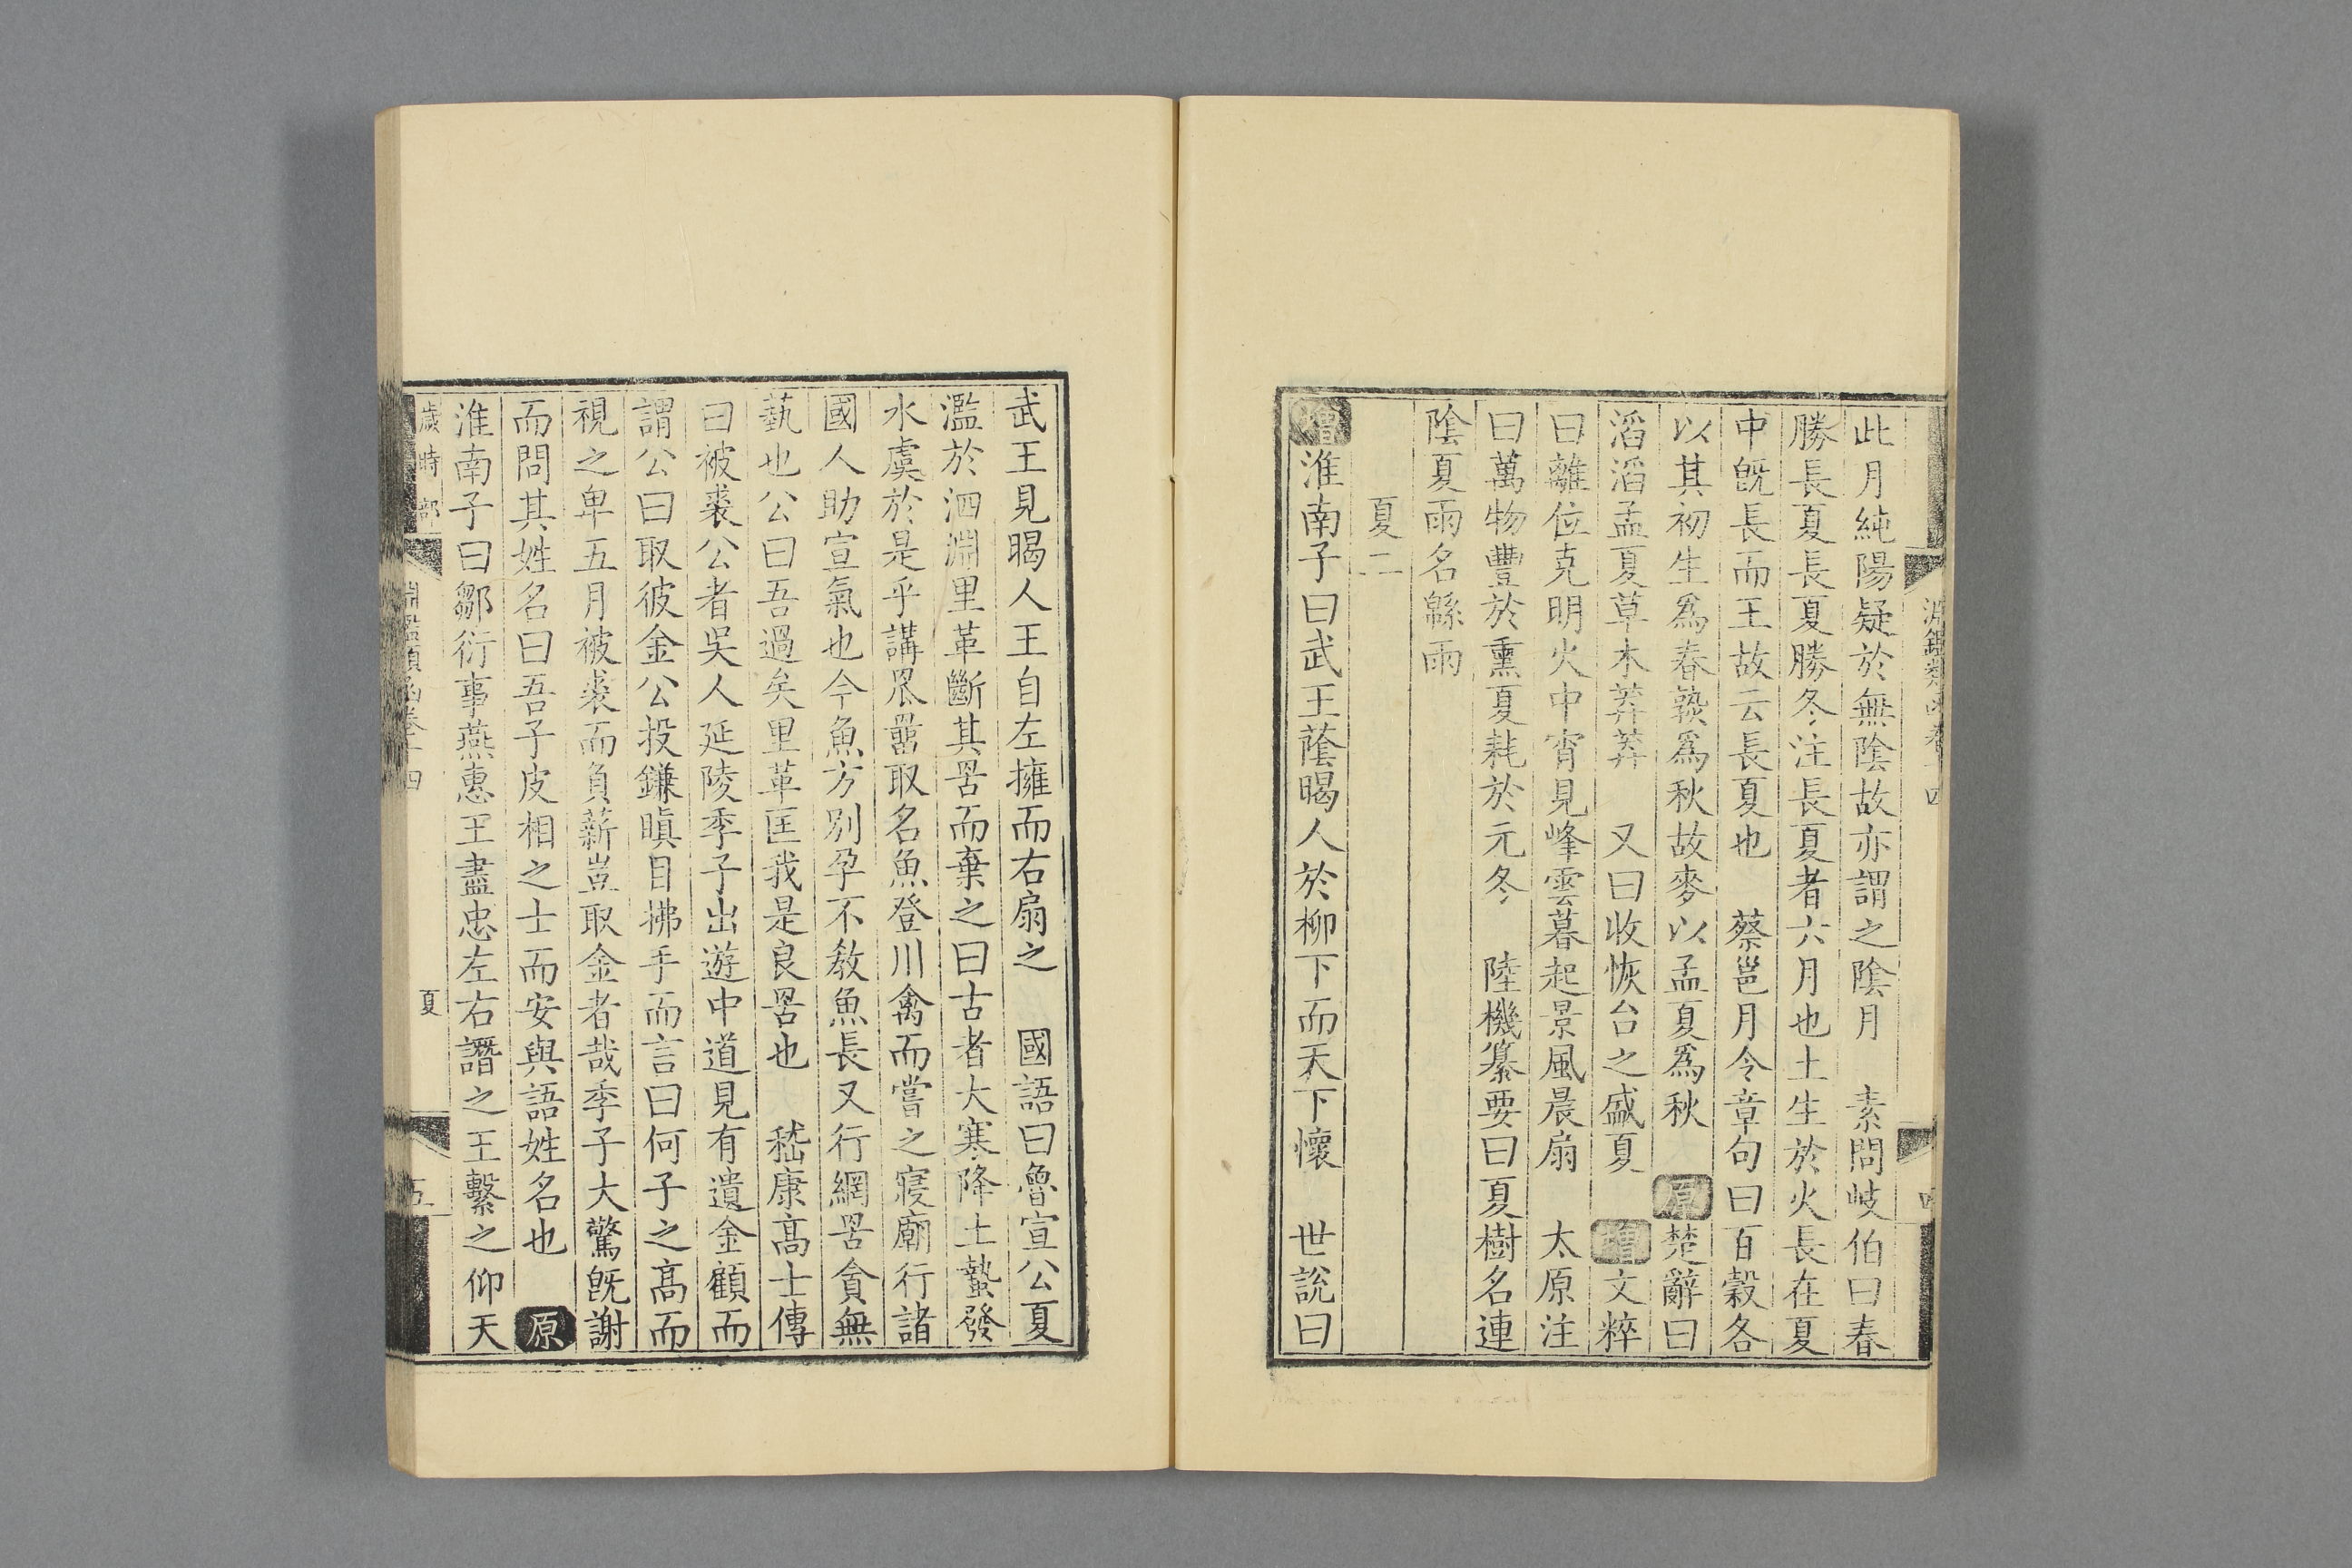 淵鑑類函卷十四
四
此月純陽疑於無陰故亦謂之陰月　素問岐伯曰春
勝長夏長夏勝冬注長夏者六月也土生於火長在夏
中旣長而王故云長夏也　蔡邕月令章句曰百穀各
以其初生爲春熟爲秋故麥以孟夏爲秋　原楚辭曰
滔滔孟夏草木莽莽　又曰收恢台之盛夏　增文粹
曰離位克明火中宵見峰雲暮起景風晨扇　太原注
曰萬物豐於熏夏耗於元冬　陸機纂要曰夏樹名連
陰夏雨名緜雨
夏二
增淮南子曰武王蔭暍人於柳下而天下懷　世說曰
武王見暍人王自左擁而右扇之　國語曰魯宣公夏
濫於泗淵里革斷其罟而棄之曰古者大寒降土蟄發
水虞於是乎講罛罶取名魚登川禽而嘗之寢廟行諸
國人助宣氣也今魚方別孕不敎魚長又行網罟貪無
藝也公曰吾過矣里革匡我是良罟也　嵇康高士傳
曰被裘公者吳人延陵季子出遊中道見有遺金顧而
謂公曰取彼金公投鎌瞋目拂手而言曰何子之高而
視之卑五月被裘而負薪豈取金者哉季子大驚旣謝
而問其姓名曰吾子皮相之士而安與語姓名也　原
淮南子曰鄒衍事燕惠王盡忠左右譖之王繫之仰天
歲時部
淵鑑類函卷十四
夏
五